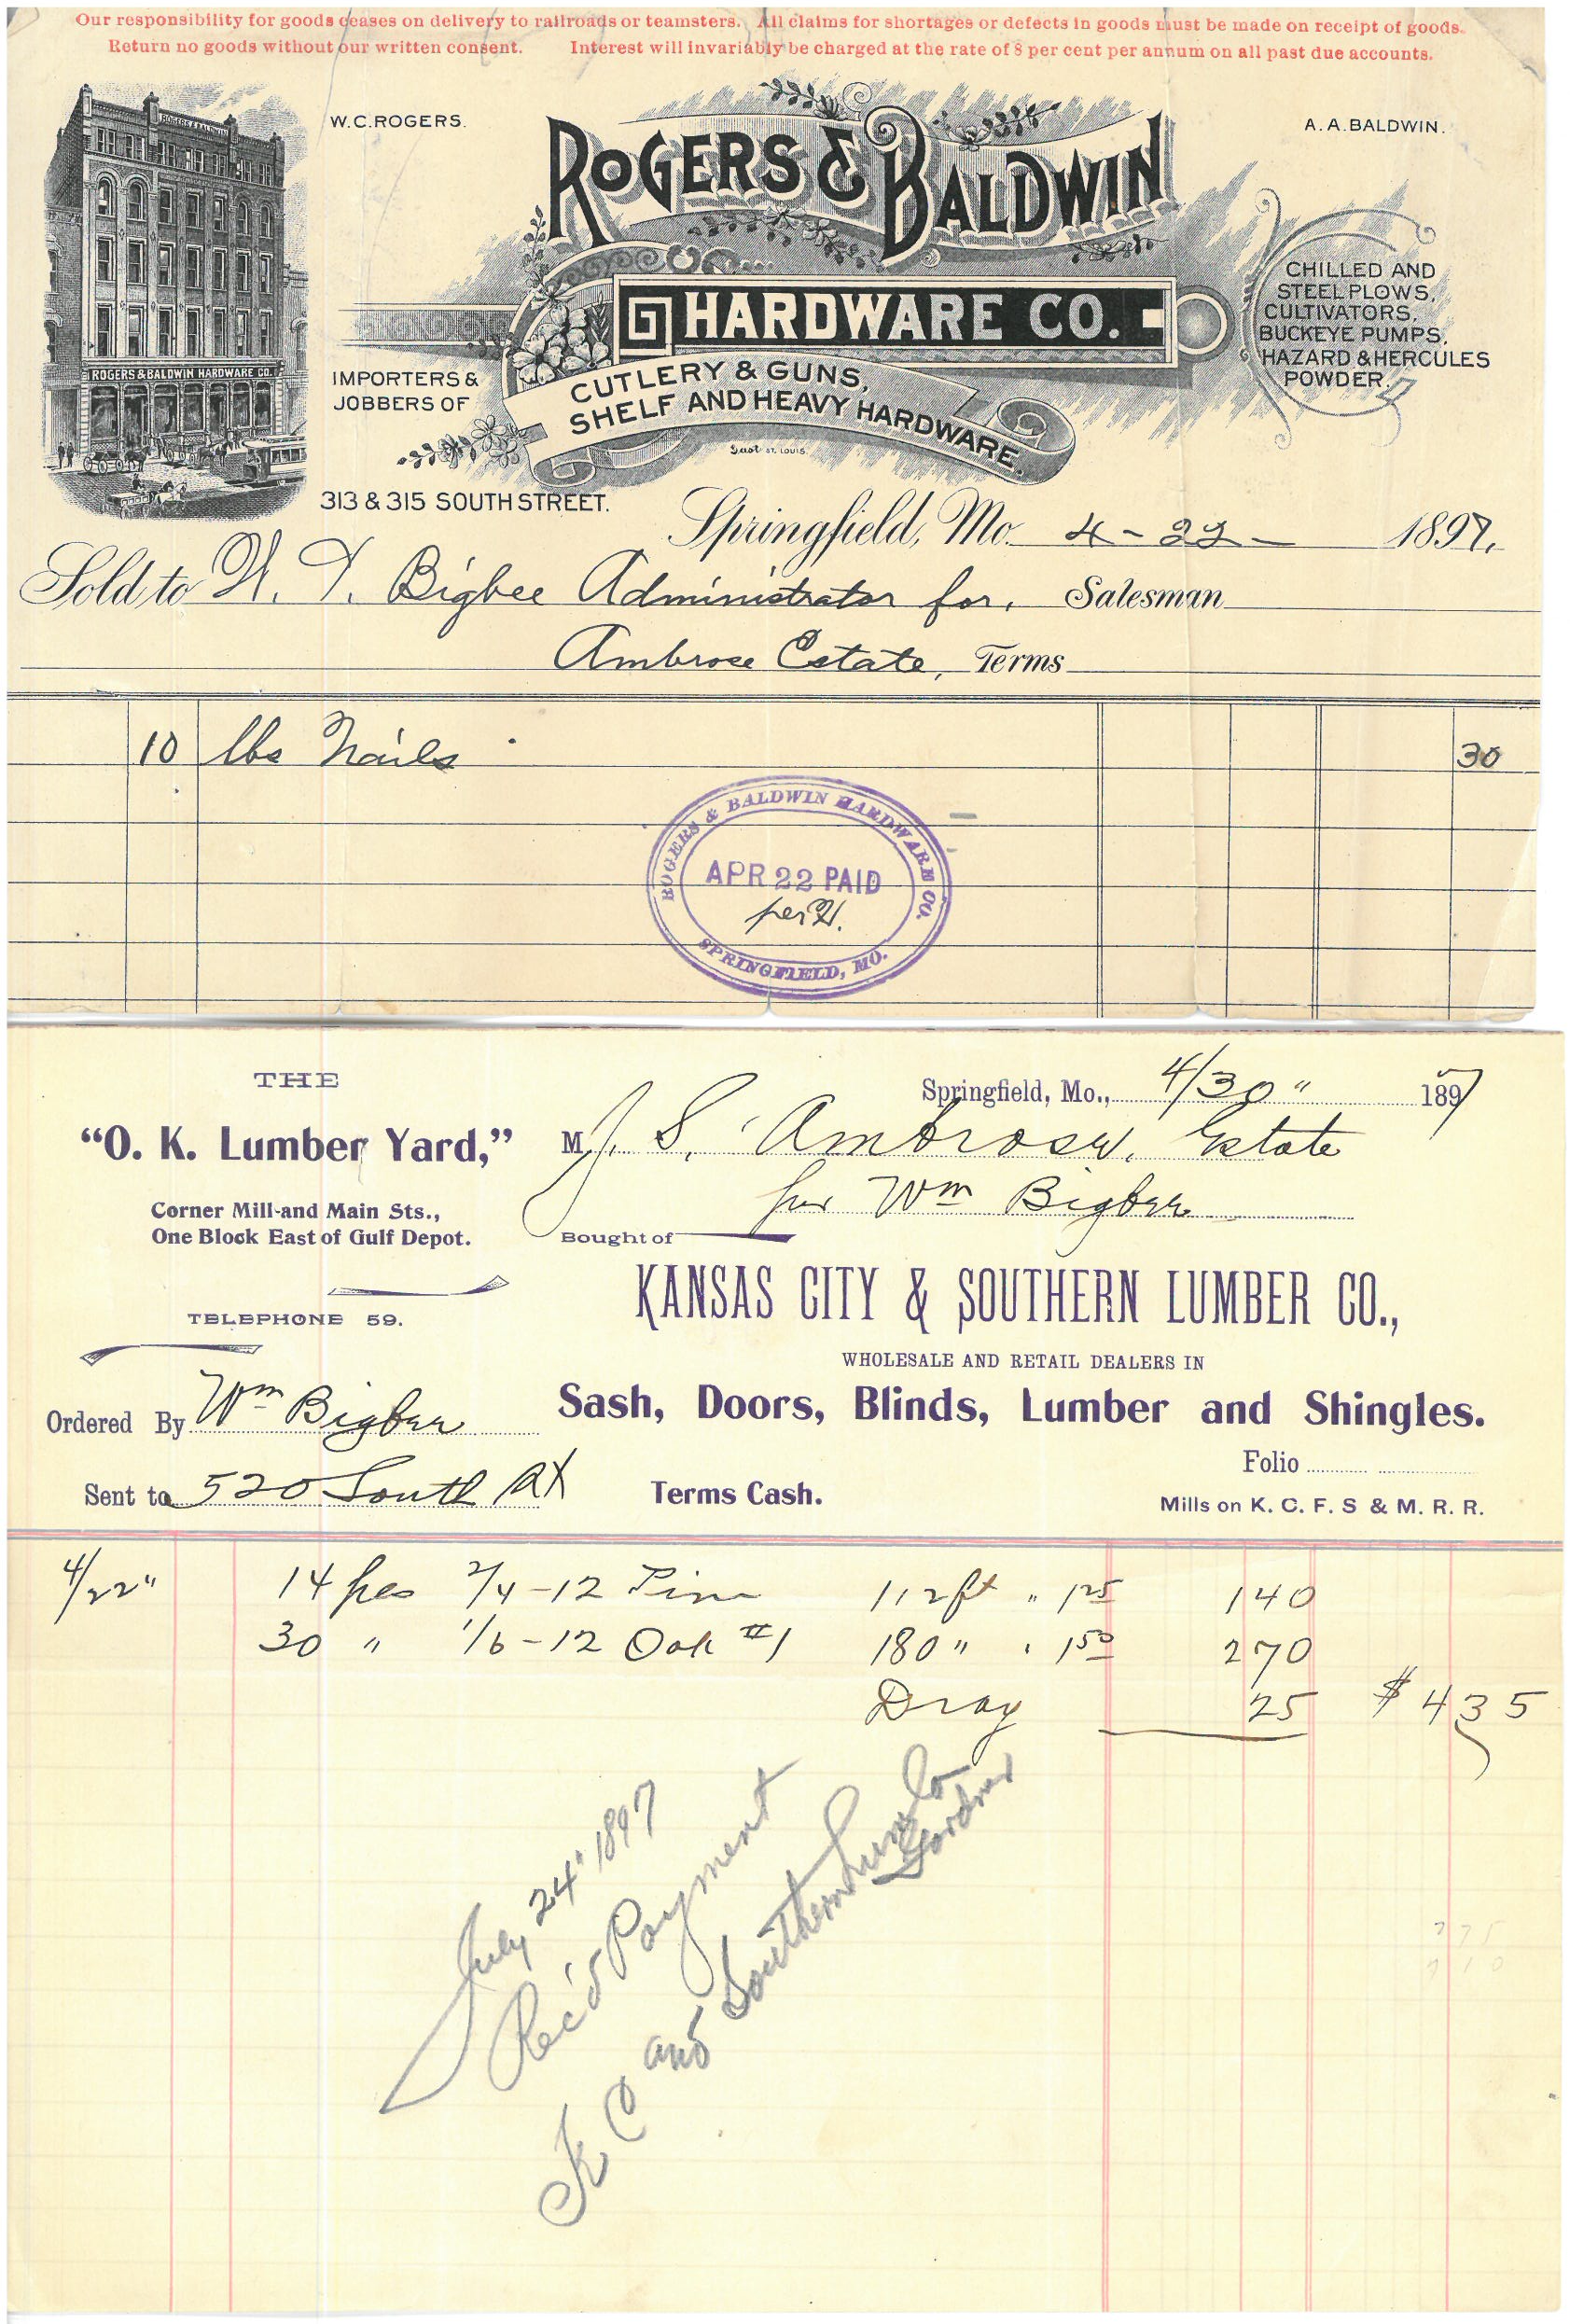 Our responsibility for goods ceases on delivery to railroads or teamsters. All claims for shortages or defects in goods must be made on receipt of goods.
Return no goods without our written consent. Interest will invariably be charged at the rate of 8 per cent per annum on all past due accounts.
W.C.ROGERS.
A.A.BALDWIN.
ROGERS & BALDWIN
HARDWARE CO.
ROGERS & BALDWIN
ROGERS & BALDWIN HARDWARE CO.
IMPORTERS &
JOBBERS OF
CUTLERY & GUNS,
SHELF AND HEAVY HARDWARE.
CHILLED AND
STEEL PLOWS,
CULTIVATORS,
BUCKEYE PUMPS,
HAZARD & HERCULES
POWDER.
ST. LOUIS.
313 & 315 SOUTH STREET.
Springfield, Mo. 4-22- 1897.
Sold to W. T. Bigbee Administrator for. Salesman
Ambrose Estate, Terms
10 lbs Nails 30
ROGERS & BALDWIN HARDWARE CO.
APR 22 PAID
per H.
SPRINGFIELD, MO.
THE
"O. K. Lumber Yard,"
Corner Mill and Main Sts.,
One Block East of Gulf Depot.
TELEPHONE 59.
Springfield, Mo., 4/30" 1897
M J. S. Ambrose, Estate
per Wm Bigbee
Bought of
KANSAS CITY & SOUTHERN LUMBER CO.,
WHOLESALE AND RETAIL DEALERS IN
Sash, Doors, Blinds, Lumber and Shingles.
Ordered By Wm Bigbee
Sent to 520 South St
Terms Cash.
Folio
Mills on K. C. F. S & M. R. R.
4/22" 14 pes 2/4-12 Pine 112 ft " 1 25 140
30 " 1/6-12 Oak #1 180 " " 1 50 270
Dray 25 $ 4 35
July 24" 1897
Rec'd Payment
K C and Southern Lum Co
Gordner